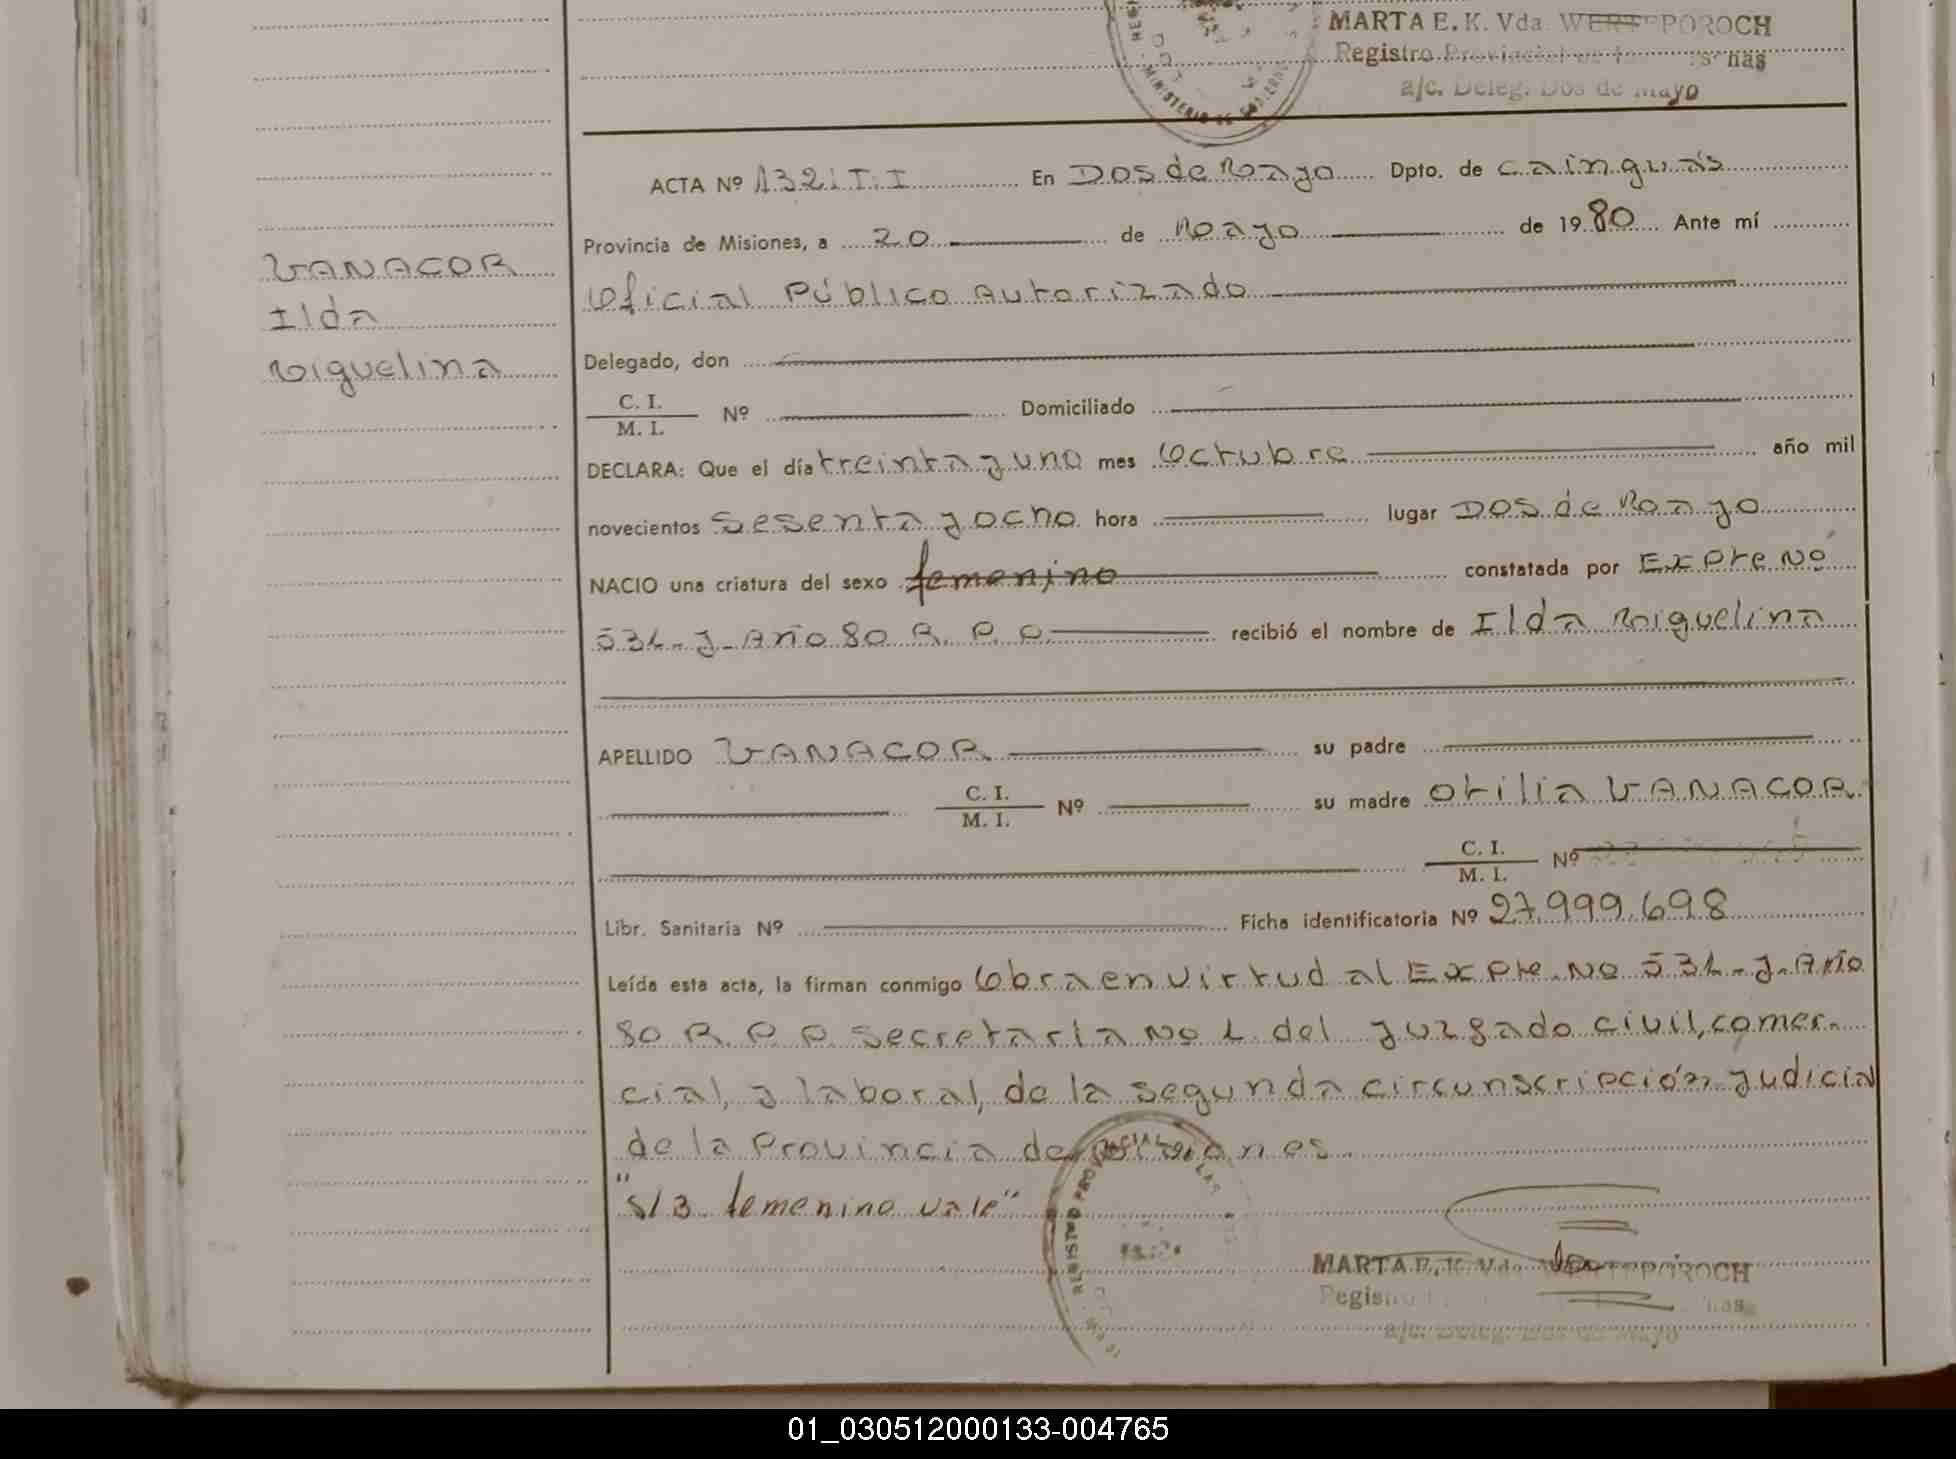 MARTA E. K. Vda. WERTPOROCH
Registro Provincial de las Personas
a/c. Deleg. Dos de Mayo
ACTA Nº 132. T. I En Dos de Mayo Dpto. de cainguás
Provincia de Misiones, a 20 de Mayo de 1980 Ante mí
Oficial Público Autorizado
VANACOR
Ilda
Miguelina
Delegado, don
C. I.
M. I. Nº Domiciliado
DECLARA: Que el día treinta y uno mes Octubre año mil
novecientos sesenta y ocho hora lugar Dos de Mayo
NACIO una criatura del sexo femenino constatada por Expte Nº
531-J-Año 80 R. P. P. recibió el nombre de Ilda Miguelina
APELLIDO VANACOR su padre
C. I.
M. I. Nº su madre Otilia VANACOR
C. I.
M. I. Nº
Libr. Sanitaria Nº Ficha identificatoria Nº 27.999.698
Leída esta acta, la firman conmigo Obra en virtud al Expte. Nº 531-J-Año
80 R. P. P. secretaria Nº 1 del juzgado civil, comer-
cial, y laboral, de la segunda circunscripción judicial
de la Provincia de Misiones
"S/B femenino vale"
MARTA E. K. Vda. WERTPOROCH
Registro
a/c. Deleg. Dos de Mayo
01_030512000133-004765